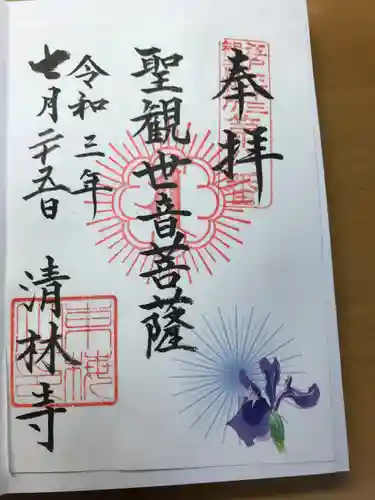 奉拝
聖観世音菩薩
令和三年
七月二十五日
清林寺